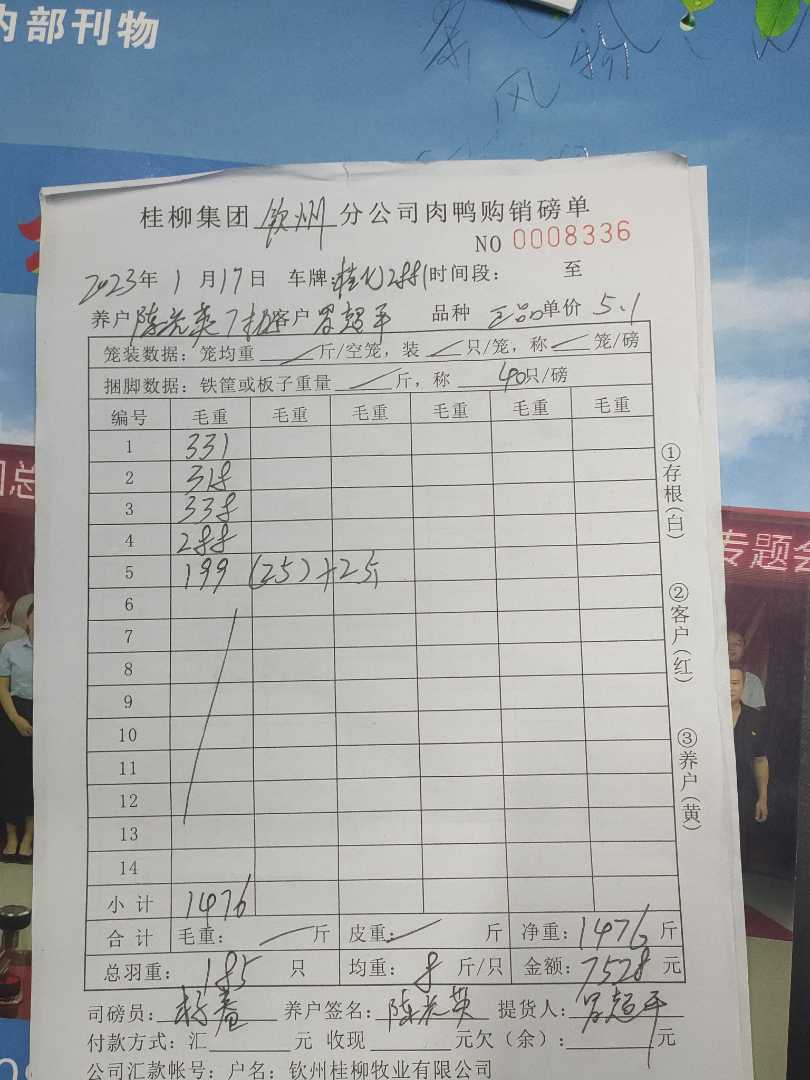 内部刊物
风
桂柳集团钦州分公司肉鸭购销磅单
NO 0008336
2023年1月17日 车牌: 时间段: 至
养户 客户 品种 单价 5.1
笼装数据:笼均重 / 斤/空笼,装 / 只/笼,称 / 笼/磅
捆脚数据:铁筐或板子重量 / 斤,称 40只/磅
编号 毛重 毛重 毛重 毛重 毛重 毛重
1 331
2 318
3 338
4 288
5 199 (25)+2斤
6
7
8
9
10
11
12
13
14
小计 1476
合计 毛重: / 斤 皮重: / 斤 净重:1476斤
总羽重:185只 均重:8斤/只 金额:7528元
司磅员: 养户签名: 提货人:
付款方式:汇 元 收现 元欠(余): 元
公司汇款帐号:户名:钦州桂柳牧业有限公司
①存根(白)
②客户(红)
③养户(黄)
专题会